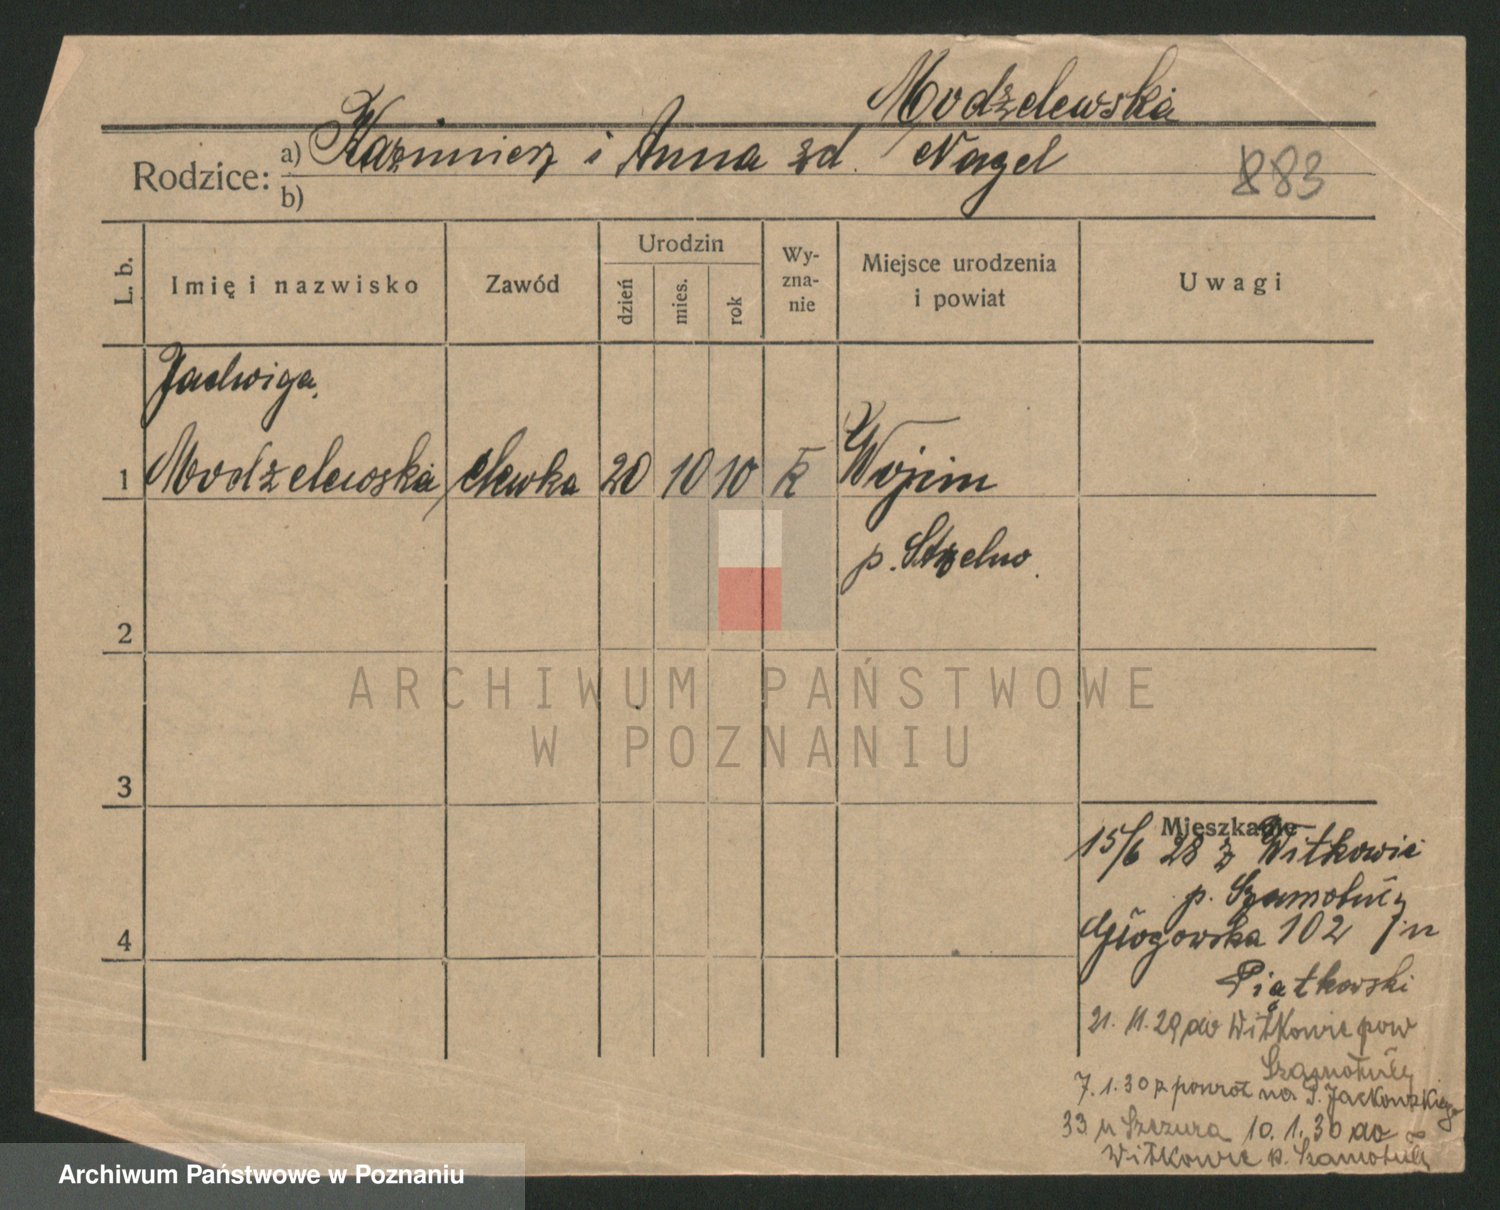 Modżelewska
Rodzice: a) Kazimierz i Anna zd. Nagel
b)
883
L. b.
Imię i nazwisko
Zawód
Urodzin
dzień
mies.
rok
Wy-
zna-
nie
Miejsce urodzenia
i powiat
Uwagi
Jadwiga
1 Modżelewska elewka 20 10 10 K Wójcin
p. Strzelno.
2
3
4
Mieszkanie
15/6 28 z Witkowic
p. Szamotuły
Głogowska 102
Piątkowski
21. 11. 29 do Witkowic pow
Szamotuły
7. 1. 30 z powrót na Jackowskiego
33 u Szczura 10. 1. 30 do
Witkowic p. Szamotuły
ARCHIWUM PAŃSTWOWE
W POZNANIU
Archiwum Państwowe w Poznaniu